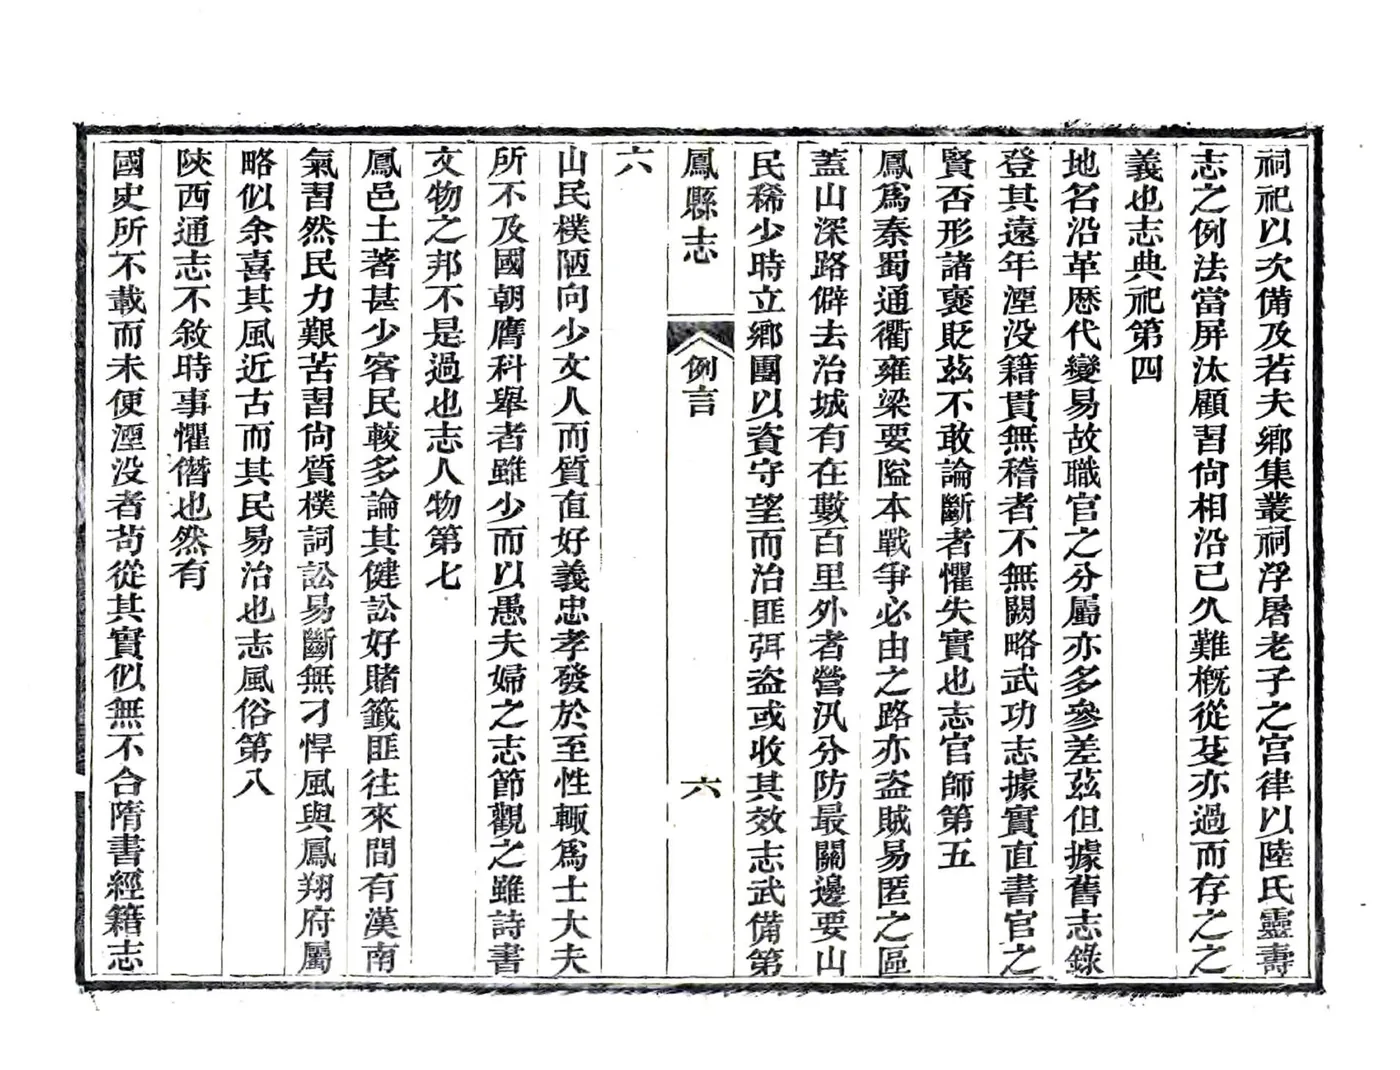 祠祀以次備及若夫鄉集叢祠浮屠老子之宮律以陸氏靈壽
志之例法當屏汰顧習尙相沿已久難槪從芟亦過而存之之
義也志典祀第四
地名沿革歷代變易故職官之分屬亦多參差茲但據舊志錄
登其遠年湮没籍貫無稽者不無闕略武功志據實直書官之
賢否形諸褒貶茲不敢論斷者懼失實也志官師第五
鳳爲秦蜀通衢雍梁要隘本戰爭必由之路亦盜賊易匿之區
蓋山深路僻去治城有在數百里外者營汛分防最關邊要山
民稀少時立鄉團以資守望而治匪弭盜或收其效志武備第
鳳縣志
例言
六
六
山民樸陋向少文人而質直好義忠孝發於至性輙爲士大夫
所不及國朝膺科舉者雖少而以愚夫婦之志節觀之雖詩書
文物之邦不是過也志人物第七
鳳邑土著甚少客民較多論其健訟好賭籤匪往來間有漢南
氣習然民力艱苦習尙質樸詞訟易斷無刁悍風與鳳翔府屬
略似余喜其風近古而其民易治也志風俗第八
陝西通志不敘時事懼僭也然有
國史所不載而未便湮没者苟從其實似無不合隋書經籍志